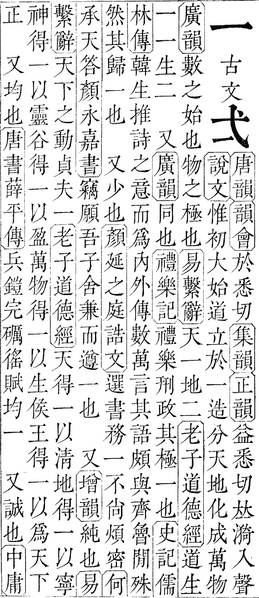 一 古文弌
唐韻韻會於悉切集韻正韻益悉切𠀤漪入聲
說文惟初大始道立於一造分天地化成萬物
廣韻數之始也物之極也易繫辭天一地二老子道德經道生
一一生二 又廣韻同也禮樂記禮樂刑政其極一也史記儒
林傳韓生推詩之意而爲內外傳數萬言其語頗與齊魯閒殊
然其歸一也 又少也顏延之庭誥文選書務一不尙煩密何
承天答顏永嘉書竊願吾子舍兼而遵一也 又增韻純也易
繫辭天下之動貞夫一老子道德經天得一以清地得一以寧
神得一以靈谷得一以盈萬物得一以生侯王得一以爲天下
正 又均也唐書薛平傳兵鎧完礪徭賦均一 又誠也中庸